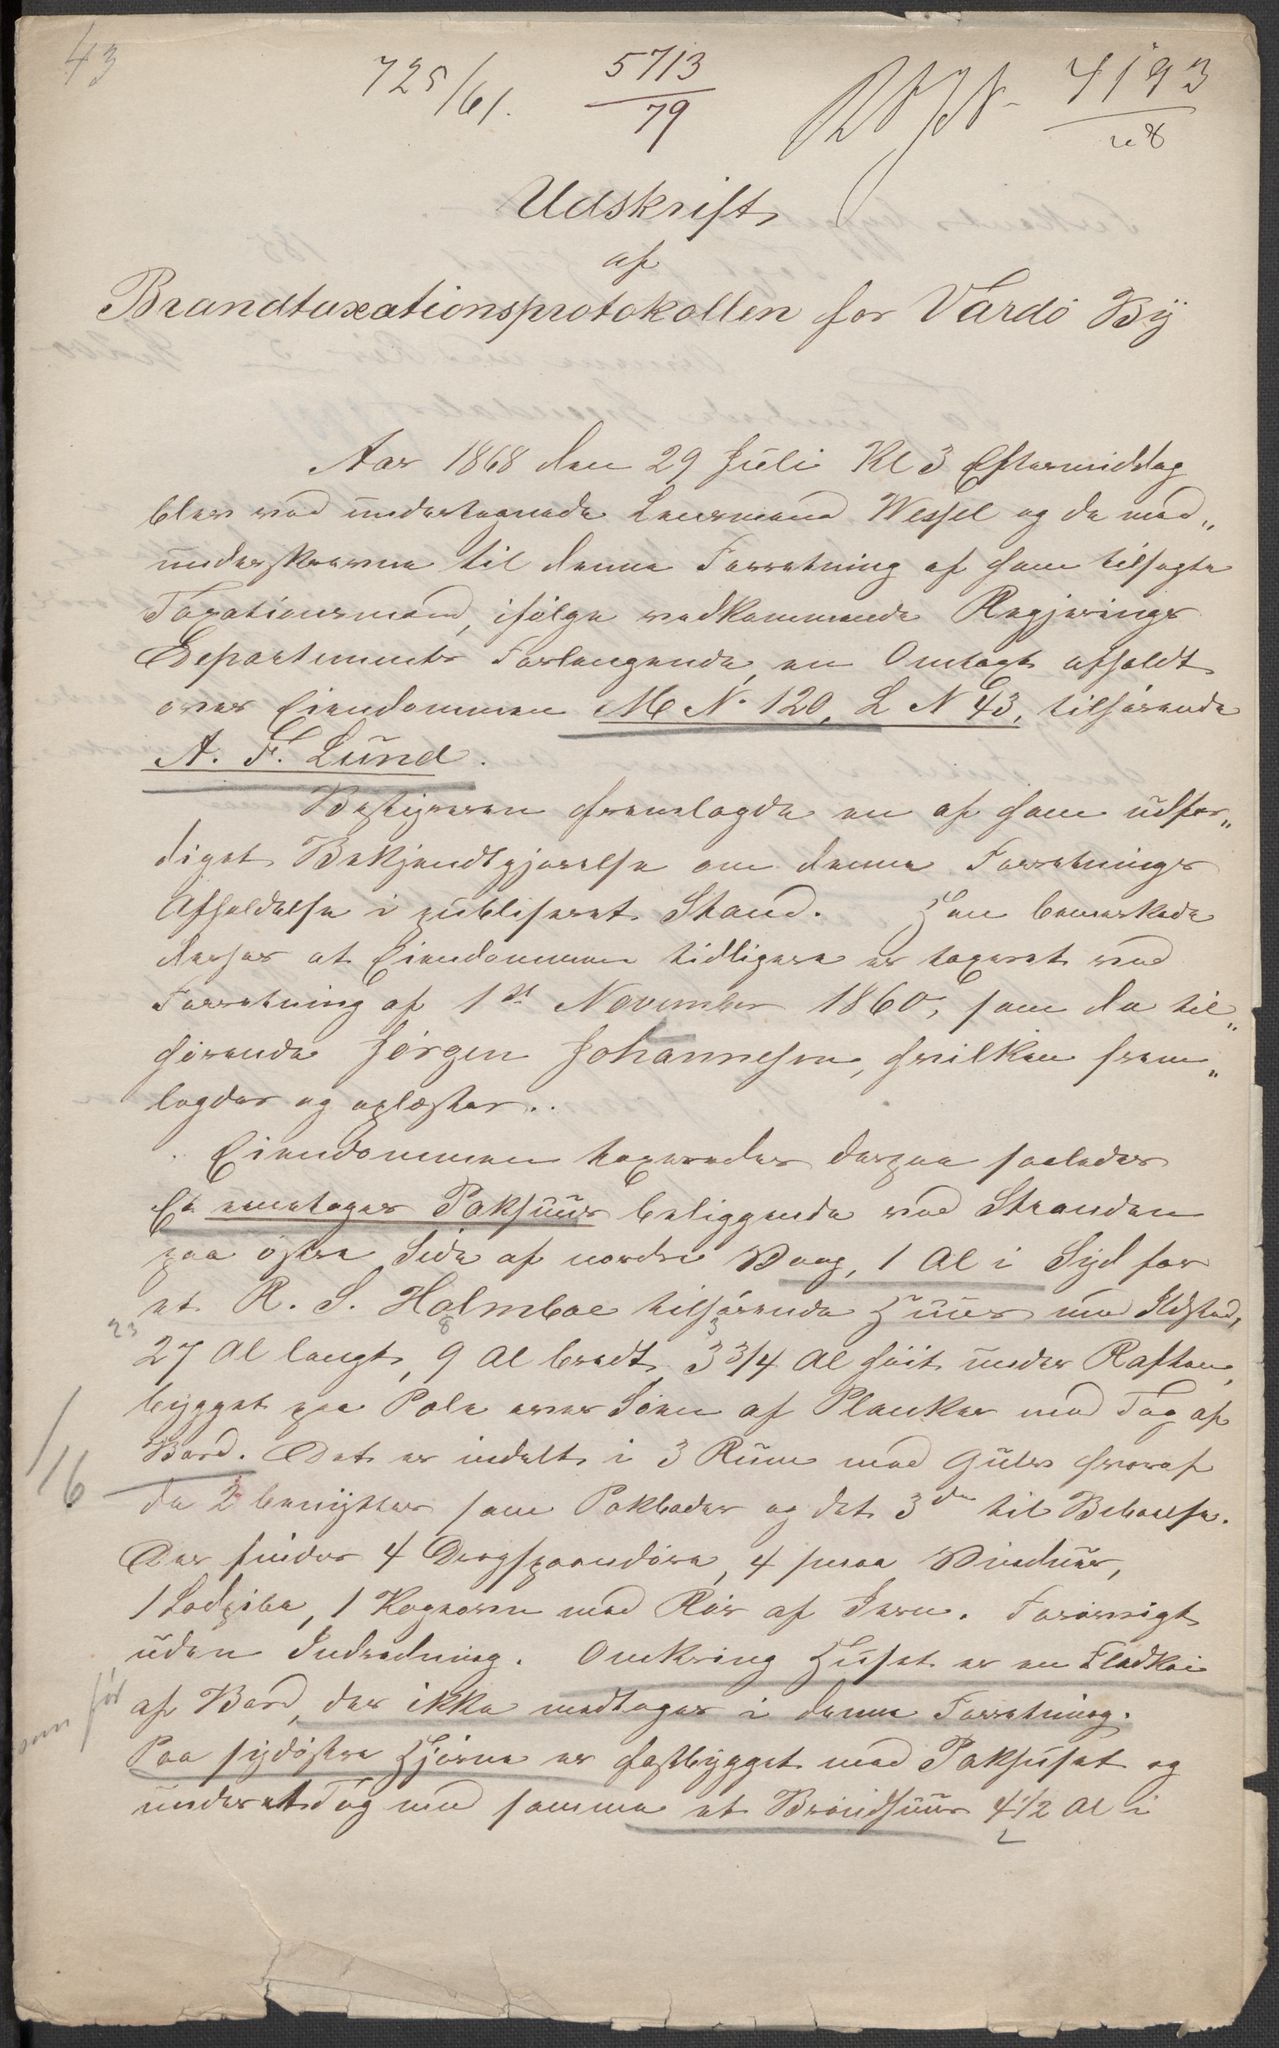 43
725/61.
5713
79
4193
Udskrift
af
Brandtaxationsprotokollen for Vardö By
Aar 1868 den 29 Juli Kl 3 Eftermiddag
blev ved undertegnede Lensmand Wessel og de med„
underskrevne til denne Forretning af ham tilsagte
Taxationsmænd, ifölge vedkommende Regjerings
Departements Forlangende, en Omtaxt afholdt
over Eiendommen M N. 120, L N 43, tilhörende
A. F. Lund.
Bestyreren fremlagde en af ham udfær„
diget Bekjendtgjörelse om denne Forretnings
Afholdelse i publiseret Stand. Han bemærkede
derhos at Eiendommen tidligere er taxeret ved
Forretning af 1st November 1860, som da til„
hörende Jörgen Johannesen, hvilken frem„
lagdes og oplæstes.
Eiendommen taxeredes derpaa saaledes
Et eenetages Pakhuus beliggende ved Stranden
paa östre Side af nordre Vaag, 1 Al i Syd for
et R. S. Holmboe tilhörende Huus med Ildsted,
23 8 3
27 Al langt, 9 Al bredt, 3 3/4 Al höit under Raften,
bygget paa Pæle over Söen af Planker med Tag af
Bord. Det er indelt i 3 Rum med Gulv hvoraf
1/16
de 2 benyttes som Pakboder og det 3de til Beboelse.
Der findes 4 Dragspaandöre, 4 smaa Vinduer,
1 Ladpibe, 1 Kogeovn med Rör af Jern. Forövrigt
uden Indredning. Omkring Huset er en Fladkai
som för
af Bord, der ikke medtages i denne Forretning.
Paa sydöstre Hjörne er fastbygget med Pakhuset og
under et Tag med samme et Bröndhuus 4 1/2 Al i
2